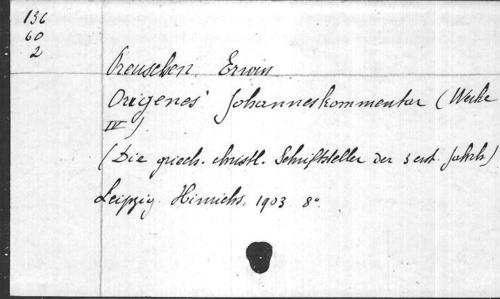 136
60
2
Preuschen, Erwin
Origenes' Johanneskommentar (Werke
IV)
(Die griech. christl. Schriftsteller der 3 erst. Jahrh)
Leipzig. Hinrichs, 1903 8°